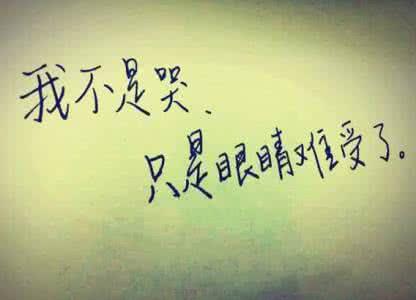 我不是哭、
只是眼睛难受了。